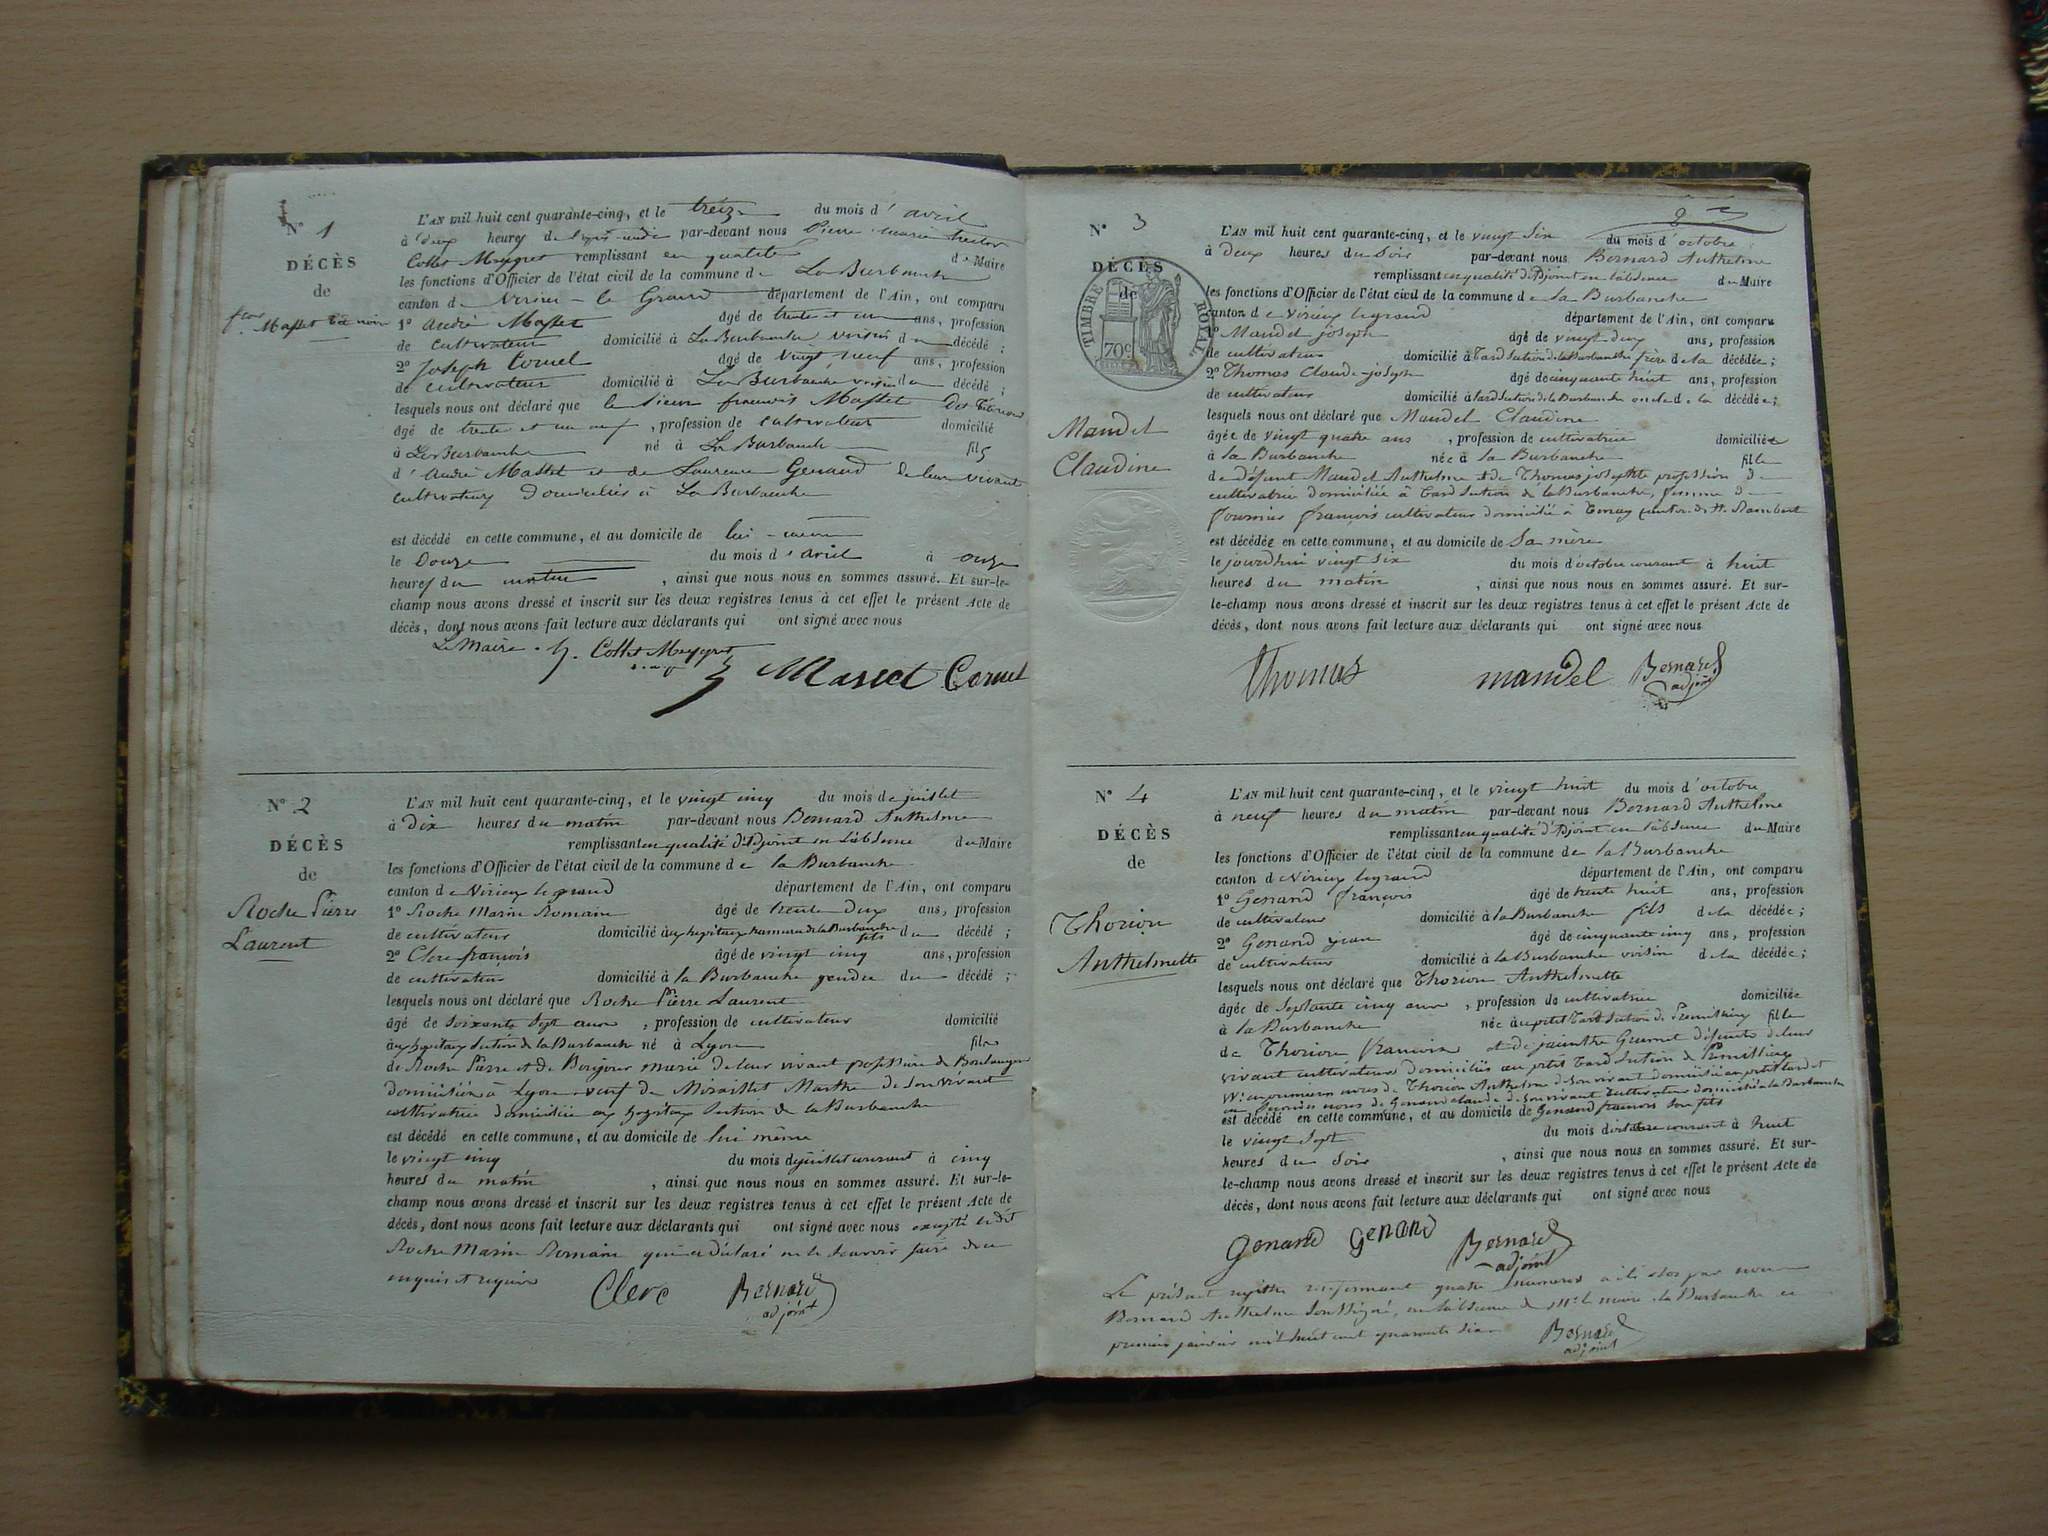 N° 1
DÉCÈS
de
L'AN mil huit cent quarante-cinq, et le treize du mois d'avril
à deux heures de par-devant nous Pierre marie hector
Collet Meygret remplissant en qualité de Maire
les fonctions d'Officier de l'état civil de la commune de La Burbanche
canton de Virieu-le Grand département de l'Ain, ont comparu
1° André Masset âgé de trente et un ans, profession
de cultivateur domicilié à La Burbanche voisin du décédé ;
2° Joseph Cornel âgé de vingt neuf ans, profession
de cultivateur domicilié à La Burbanche voisin du décédé ;
lesquels nous ont déclaré que le sieur françois Masset
âgé de trente et , profession de cultivateur domicilié
à La Burbanche né à La Burbanche fils
d'André Masset et de Laurence Genand de leur vivant
cultivateurs domiciliés à La Burbanche
est décédé en cette commune, et au domicile de lui-même
le Douze du mois d'avril à onze
heures du matin , ainsi que nous nous en sommes assuré. Et sur-le-
champ nous avons dressé et inscrit sur les deux registres tenus à cet effet le présent Acte de
décès, dont nous avons fait lecture aux déclarants qui ont signé avec nous
Le Maire . h. Collet Meygret
Masset Cornel
N° 2
DÉCÈS
de
Roche Pierre
Laurent
L'AN mil huit cent quarante-cinq, et le vingt cinq du mois de juillet
à Dix heures du matin par-devant nous Bernard Anthelme
remplissant en qualité d'Adjoint en l'absence du Maire
les fonctions d'Officier de l'état civil de la commune de la Burbanche
canton de Virieu le grand département de l'Ain, ont comparu
1° Roche Marin Romain âgé de trente deux ans, profession
de cultivateur domicilié aux hopitaux de la Burbanche fils du décédé ;
2° Clerc françois âgé de vingt cinq ans, profession
de cultivateur domicilié à la Burbanche gendre du décédé ;
lesquels nous ont déclaré que Roche Pierre Laurent
âgé de soixante sept ans , profession de cultivateur domicilié
aux hopitaux section de la Burbanche né à Lyon fils
de Roche Pierre et de Bonjour marie de leur vivant profession de Boulanger
domiciliés à Lyon veuf de Miraillet Marthe de son vivant
cultivatrice domiciliée aux hopitaux section de la Burbanche
est décédé en cette commune, et au domicile de lui même
le vingt cinq du mois de juillet courant à cinq
heures du matin , ainsi que nous nous en sommes assuré. Et sur-le-
champ nous avons dressé et inscrit sur les deux registres tenus à cet effet le présent Acte de
décès, dont nous avons fait lecture aux déclarants qui ont signé avec nous excepté ledit
Roche Marin Romain qui a déclaré ne le savoir faire de ce
enquis et requis
Clerc Bernard
adjoint
2
N° 3
DÉCÈS
de
TIMBRE ROYAL
70c
Mandel
Claudine
L'AN mil huit cent quarante-cinq, et le vingt six du mois d'octobre
à deux heures du soir par-devant nous Bernard Anthelme
remplissant en qualité d'Adjoint en l'absence du Maire
les fonctions d'Officier de l'état civil de la commune de la Burbanche
canton de virieu legrand département de l'Ain, ont comparu
1° Mandel joseph âgé de vingt deux ans, profession
de cultivateur domicilié à Tard section de la Burbanche frère de la décédée ;
2° Thomas Claude-joseph âgé de cinquante huit ans, profession
de cultivateur domicilié à tard section de la Burbanche oncle de la décédée ;
lesquels nous ont déclaré que Mandel Claudine
âgée de vingt quatre ans , profession de cultivatrice domiciliée
à la Burbanche née à la Burbanche fille
de défunt Mandel Anthelme et de Thomas josephte profession de
cultivatrice domiciliée à Tard section de la Burbanche, femme de
fournier françois cultivateur domicilié à Tenay canton de St. Rambert
est décédée en cette commune, et au domicile de Sa mère
le jourdhui vingt six du mois d'octobre courant à huit
heures du matin , ainsi que nous nous en sommes assuré. Et sur-
le-champ nous avons dressé et inscrit sur les deux registres tenus à cet effet le présent Acte de
décès, dont nous avons fait lecture aux déclarants qui ont signé avec nous
Thomas mandel Bernard
adjoint
N° 4
DÉCÈS
de
Thorion
Anthelmette
L'AN mil huit cent quarante-cinq, et le vingt huit du mois d'octobre
à neuf heures du matin par-devant nous Bernard Anthelme
remplissant en qualité d'Adjoint en l'absence du Maire
les fonctions d'Officier de l'état civil de la commune de la Burbanche
canton de Virieu legrand département de l'Ain, ont comparu
1° Genand françois âgé de trente huit ans, profession
de cultivateur domicilié à la Burbanche fils de la décédée ;
2° Genand jean âgé de cinquante cinq ans, profession
de cultivateur domicilié à la Burbanche voisin de la décédée ;
lesquels nous ont déclaré que Thorion Anthelmette
âgée de Septante cinq ans , profession de cultivatrice domiciliée
à la Burbanche née au petit Tard section de fille
de Thorion françois et de jacinthe Grumet défunts de leur
vivant cultivateurs domiciliés au petit Tard section de
en premières noces de Thorion Anthelme de son vivant domicilié au petit tard et
en secondes noces de Genand claude de son vivant cultivateur domicilié à la Burbanche
est décédé en cette commune, et au domicile de Genand françois son fils
le vingt Sept du mois d'octobre courant à huit
heures du Soir , ainsi que nous nous en sommes assuré. Et sur-
le-champ nous avons dressé et inscrit sur les deux registres tenus à cet effet le présent Acte de
décès, dont nous avons fait lecture aux déclarants qui ont signé avec nous
Genand Genand Bernard
adjoint
Le présent registre renfermant quatre numeros a été clos par nous
Bernard Anthelme soussigné, en l'absence de Mr. le maire. la Burbanche ce
premier janvier mil huit cent quarante six
Bernard
adjoint